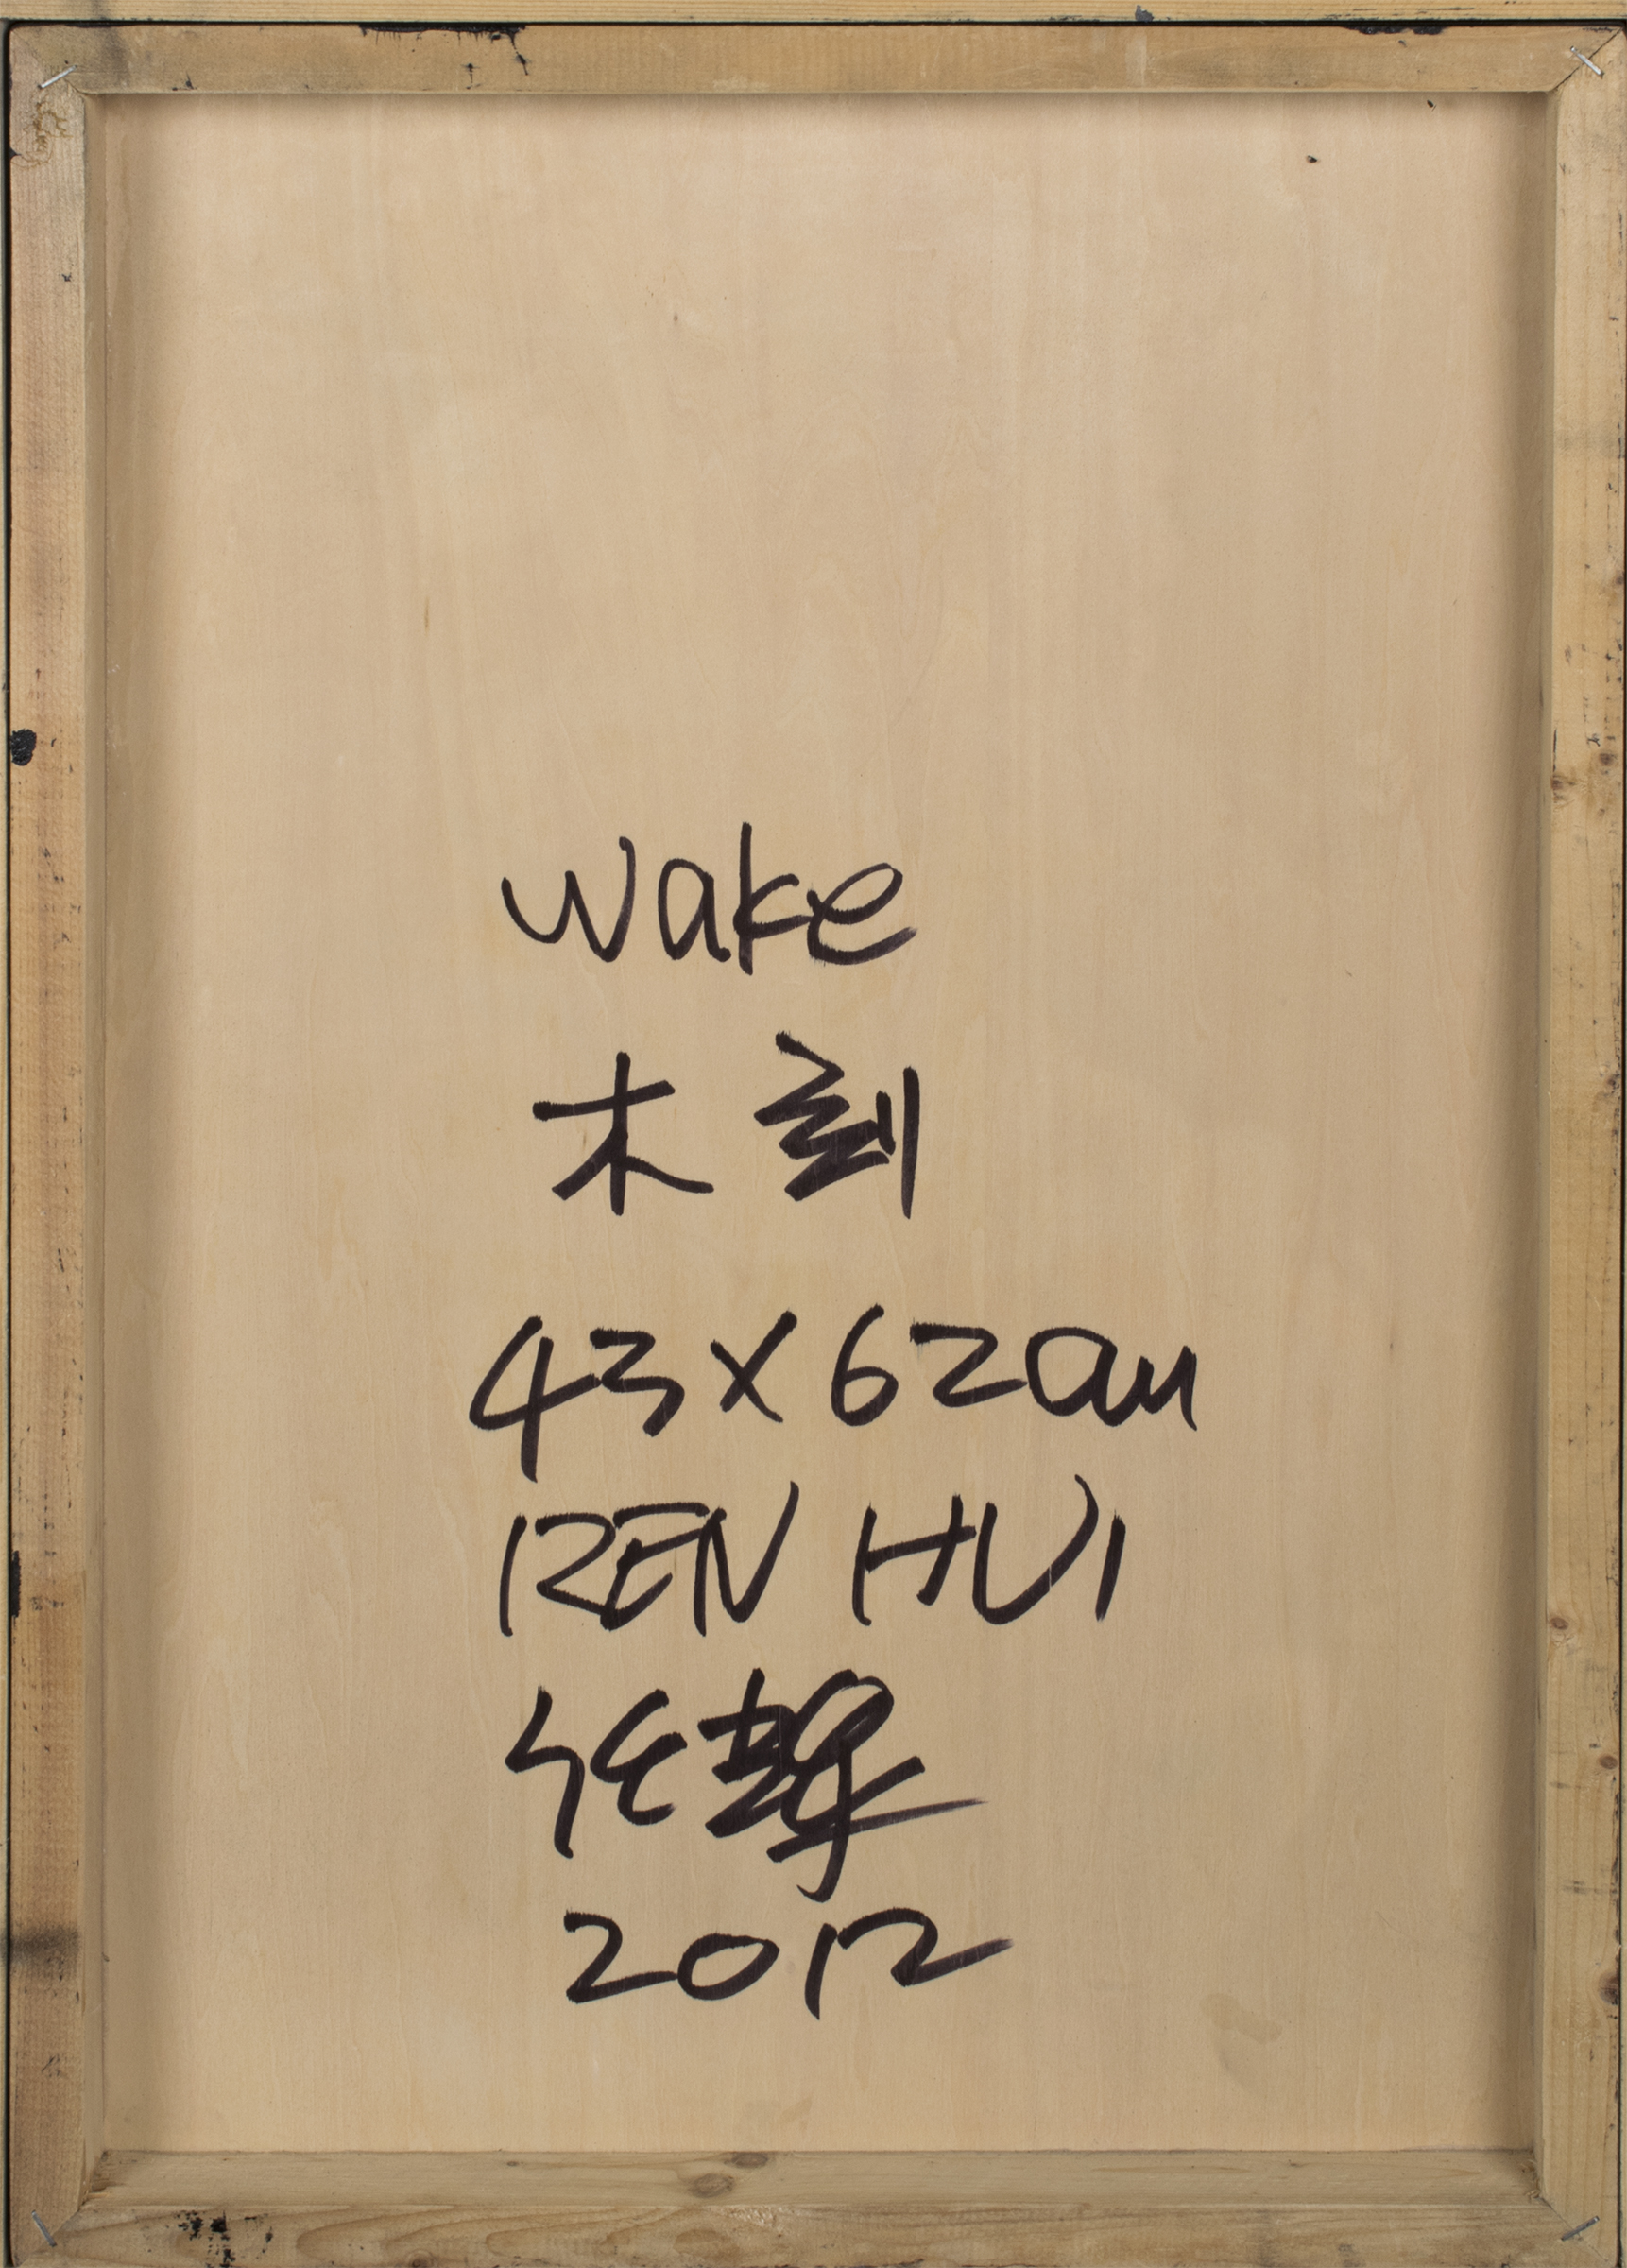 Wake
木刻
43×62cm
REN HUI
任辉
2012